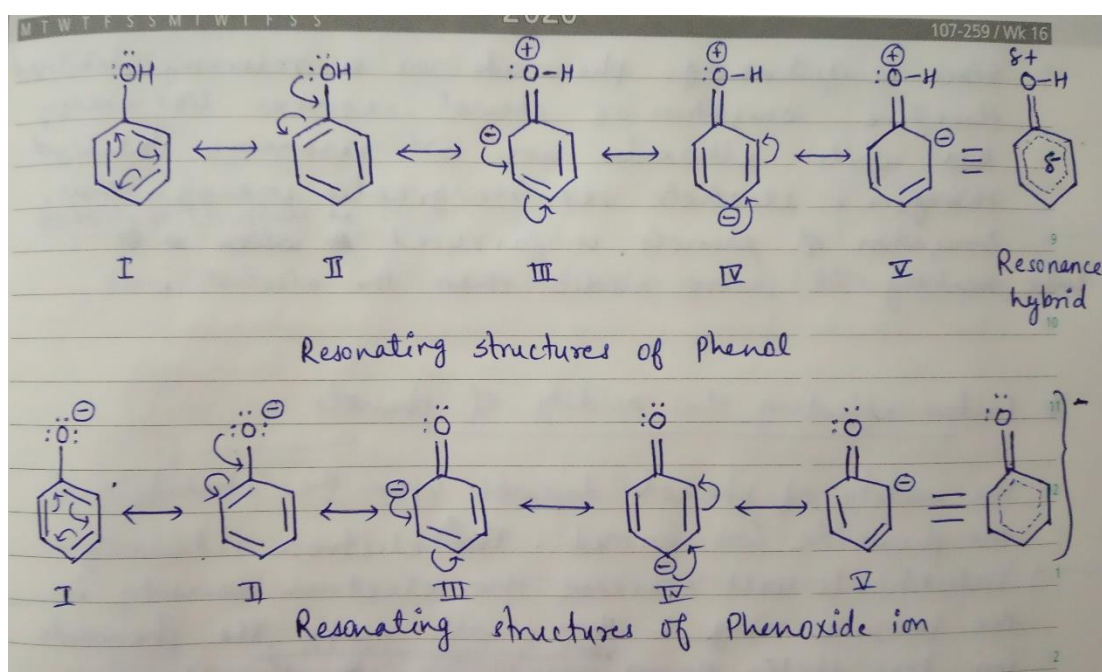 M T W T F S S M T W T F S S 2020 107-259 / Wk 16
:ÖH :ÖH ⊕ ⊕ ⊕ δ+
:O-H :O-H :O-H O-H
⊖ ⊖ ⊖ ≡ δ-
I II III IV V Resonance
hybrid
9
10
Resonating structures of Phenol
11
:Ö:⊖ :Ö:⊖ :Ö :Ö :Ö :Ö -
12
⊖ ⊖ ⊖ ≡
I II III IV V
1
Resonating structures of Phenoxide ion
2